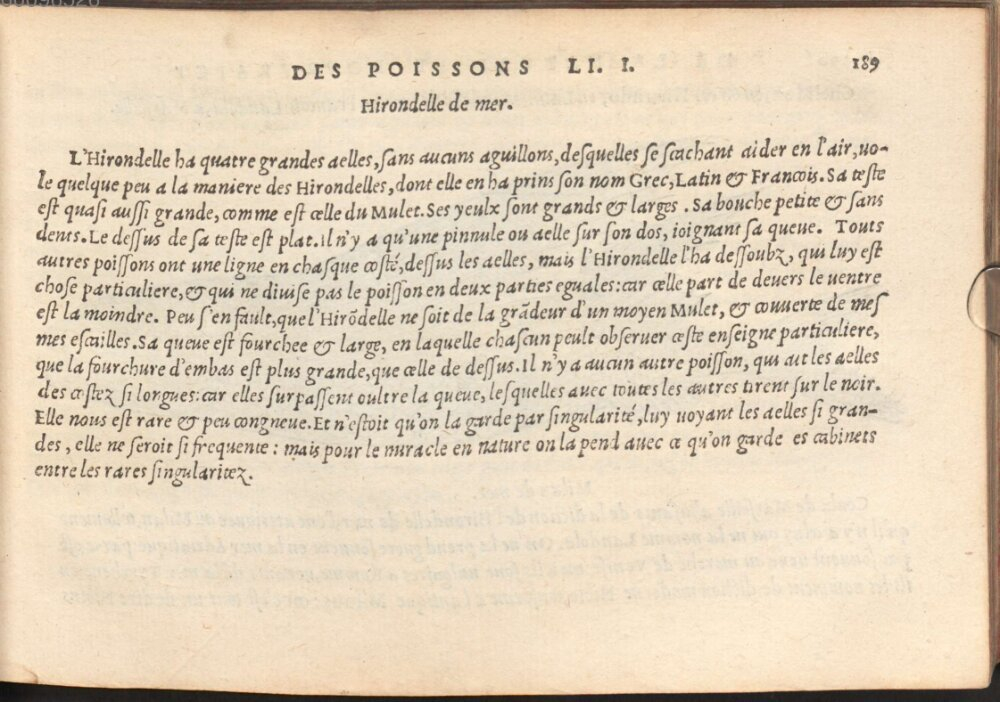 DES POISSONS LI. I. 189
Hirondelle de mer.
L'Hirondelle ha quatre grandes aelles, sans aucuns aguillons, desquelles se scachant aider en l'air, uo-
le quelque peu a la maniere des Hirondelles, dont elle en ha prins son nom Grec, Latin & Francois. Sa teste
est quasi aussi grande, comme est celle du Mulet. Ses yeulx sont grands & larges. Sa bouche petite & sans
dents. Le dessus de sa teste est plat. il n'y a qu'une pinnule ou aelle sur son dos, ioignant sa queue. Touts
autres poissons ont une ligne en chasque costé, dessus les aelles, mais l'Hirondelle l'ha dessoubz, qui luy est
chose particuliere, & qui ne divise pas le poisson en deux parties eguales: car celle part de devers le ventre
est la moindre. Peu s'en fault, que l'Hirõdelle ne soit de la grãdeur d'un moyen Mulet, & couverte de mes
mes escailles. Sa queue est fourchee & large, en laquelle chascun peult observer ceste enseigne particuliere,
que la fourchure d'embas est plus grande, que celle de dessus. Il n'y a aucun autre poisson, qui ait les aelles
des costez si longues: car elles surpassent oultre la queue, lesquelles avec toutes les autres tirent sur le noir.
Elle nous est rare & peu congneue. Et n'estoit qu'on la garde par singularité, luy uoyant les aelles si gran-
des, elle ne seroit si frequente: mais pour le miracle en nature on la pend avec ce qu'on garde es cabinets
entre les rares singularitez.